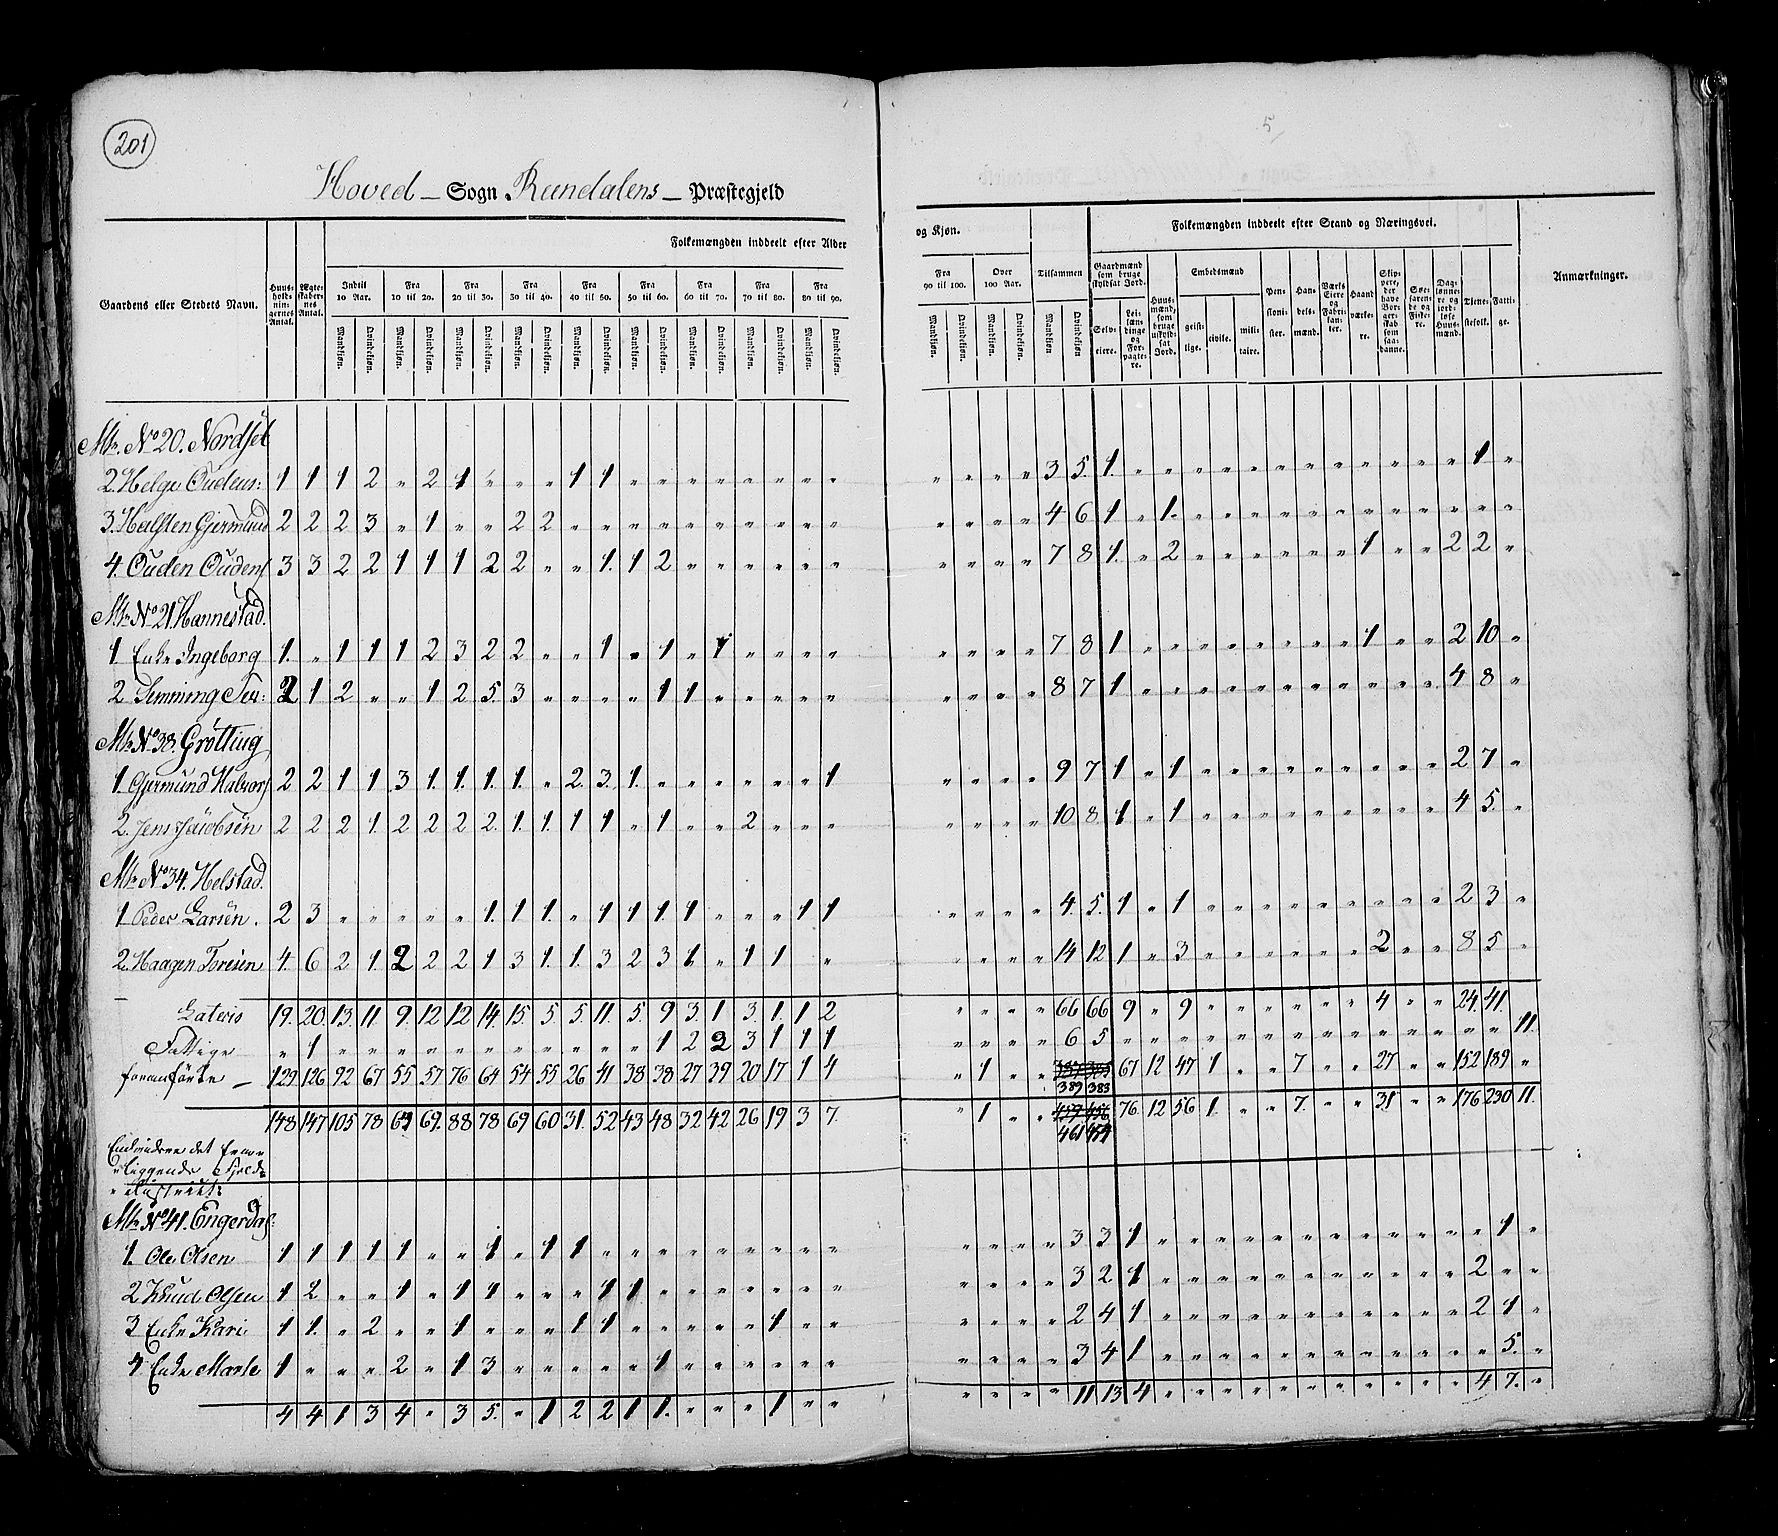 201
5
Hoved – Sogn Rendalens – Præstegjeld
Folkemængden inddeelt efter Alder
og Kjøn.
Folkemængden inddeelt efter Stand og Næringsvei.
Gaardens eller Stedets Navn.
Huus-holdnin-gernes Antal.
Ægte-skaber-nes Antal.
Indtil 10 Aar.
Fra 10 til 20.
Fra 20 til 30.
Fra 30 til 40.
Fra 40 til 50.
Fra 50 til 60.
Fra 60 til 70.
Fra 70 til 80.
Fra 80 til 90.
Fra 90 til 100.
Over 100 Aar.
Tilsammen
Mandkjøn. Qvindekjøn.
Gaardmænd som bruge skyldsat Jord.
Selv-eiere.
Lei-lændinge og For-pagte-re.
Huus-mænd, som bruge uskyldsat Jord.
Embedsmænd
geist-lige.
civile.
mili-taire.
Pen-sioni-ster.
Han-dels-mænd.
Værks Eiere og Fabri-kan-ter.
Haand-værke-re.
Skip-pere, der have Bor-ger-skab som saa-danne.
Søe-farende og Fiske-re.
Dag-lønne-re og jord-løse Huus-mænd.
Tiene-stefolk.
Fatti-ge.
Anmærkninger.
Mtr. No 20. Nordset
2. Helge Oudens: 1 1 1 2 " 2 1 " " " 1 1 " " " " " " " " " " " " 3 5. 1. " " " " " " " " " " " " 1 "
3. Halsten Gjermund 2 2 2 3 " 1 " " 2 2 " " " " " " " " " " " " " " 4 6 1 " 1. " " " " " " " " " " " "
4. Ouden Oudens 3 3 2 2 1 1 1 2 2 " " 1. 1 2 " " " " " " " " " " 7 8 1. " 2 " " " " " " 1 " " 2 2 "
Mtr No 21 Hannestad.
1 Enke Ingeborg 1. " 1 1 1 2 3 2 2 " " 1 " 1 " 1 " " " " " " " " 7 8 1 " " " " " " " " 1 " " 2 10 "
2 Simming Per: 2 1 2 " " 1 2 5. 3 " " " " 1 1 " " " " " " " " " 8 7 1 " " " " " " " " " " " 4 8 "
Mtr No 38. Grötting
1. Gjermund Halvors 2 2 1 1 3 1. 1. 1. 1. " 2. 3. 1. " " " " " " 1 " " " " 9 7 1 " 1 " " " " " " " " " 2 7 "
2. Jens Jacobsen 2 2 2 1. 2 2 2 2. 1. 1. 1 1 " 1 " " 2 " " " " " " " 10 8 1 " 1 " " " " " " " " " 4 5. "
Mtr No 34. Helstad.
1 Peder Larsen. 2 3 " " " " " 1. 1. 1. " 1 1 1. 1 " " " 1 1 " " " " 4. 5. 1 " 1 " " " " " " " " " 2 3 "
2. Haagen Toresen 4. 6 2 1. 2 2 2 1 3 1. 1. 3 2 3 1. " 1 1 " " " " " 14 12 1 " 3 " " " " " " 2 " " 8 5 "
Lateris 19. 20. 13. 11. 9. 12 12 14. 15. 5. 5. 11. 5 9 3. 1 3 1. 1 2 " " " " 66 66 9 " 9 " " " " " " 4 " " 24. 41.
Fattige " 1 " " " " " " " " " " " 1 2 2 3 1 1 1 " " " " 6 5 " " " " " " " " " " " " " " 11.
foranførte – 129 126 92 67 55 57 76 64 54 55 26 41 38 38 27 39 20 17 1 4 " 1 " " 389 383 67 12 47 1 " " 7 " " 27 " " 152 189 "
148 147 105 78 64 69. 88 78 69 60 31. 52 43 48 32 42 26 19 3 7. " 1 " " 461 459 76. 12 56 1. " " 7. " " 31 " " 176 230 11.
Endvidere det
liggende Fjeld-
Mtr No 41. Engerdal:
1. Ole Olsen 1 1 1 1 1 " " 1 " 1 1 " " " " " " " " " " " " " 3 3 1 " " " " " " " " " " " " 1 "
2 Knud Olsen 1 2 " " 1 " 1 1 " " " 1 1 " " " " " " " " " " " 3 2 1 " " " " " " " " " " " 2 " "
3 Enke Kari 1 1. " 2 " " 1 " " " 1 1 " " " " " 1 " " " " " " 2 4 1 " " " " " " " " " " " 2 1 "
4 Enke Marte 1 " " " 2 " 1 3 " " " " " 1 " " " " " " " " " " 3 4 1 " " " " " " " " " " " " 5. "
4 4 1 3 4 " 3 5. " 1 2 2 1 1. " " " 1 " " " " " " 11 13 4 " " " " " " " " " " " 4 7. "